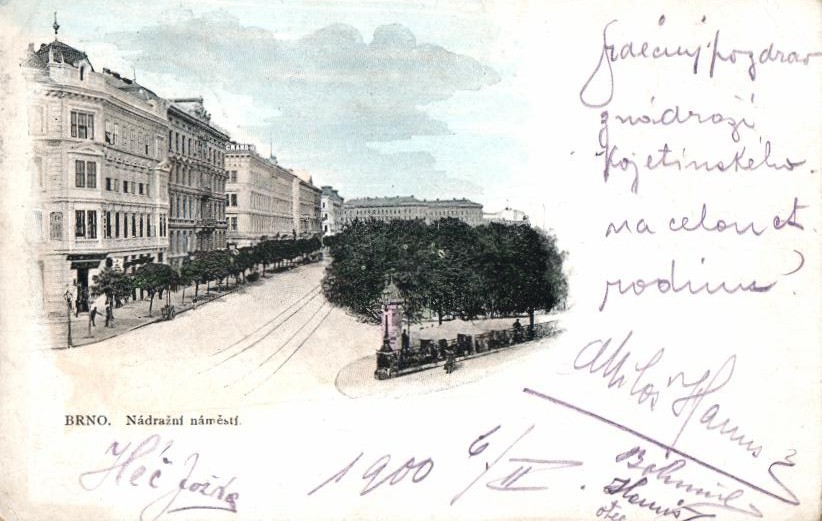 GRAND
Srdečný pozdrav
z nádraží
Kojetínského
na celou ct.
rodinu
Miloš Hanus
BRNO. Nádražní náměstí.
Jožka
1900 6/II.
Bohumil
Hanuš
otec